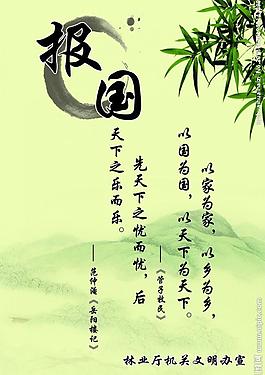 报国
以家为家，以乡为乡，
以国为国，以天下为天下。
——《管子牧民》
先天下之忧而忧，后
天下之乐而乐。
——范仲淹《岳阳楼记》
林业厅机关文明办宣